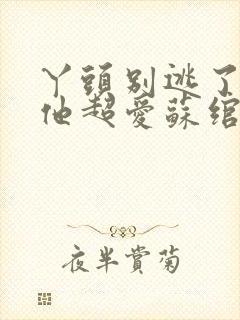 丫頭別逃了
他超愛蘇綰
夜半賞菊